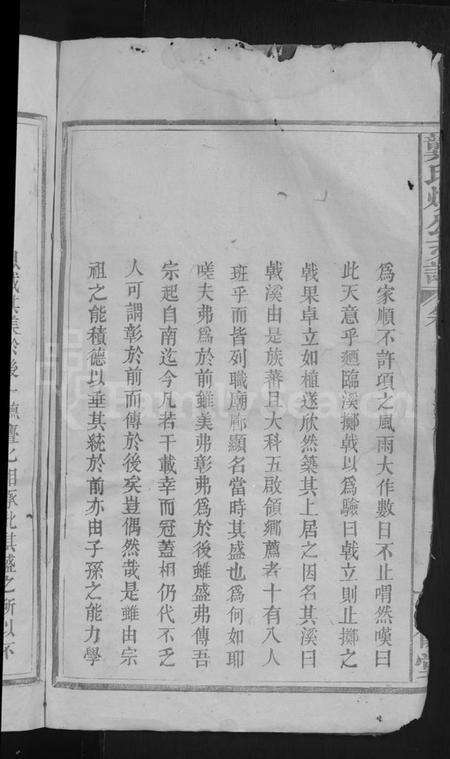 為家順不許項之風雨大作數日不止喟然嘆曰
此天意乎廼臨溪擲戟以為驗曰戟立則止擲之
戟果卓立如植遂欣然築其上居之因名其溪曰
戟溪由是族蕃且大科五啟領鄉薦者十有八人
班乎而皆列職廟廊顯名當時其盛也為何如耶
嗟夫弗為於前雖美弗彰弗為於後雖盛弗傳吾
宗起自南迄今凡若干載幸而冠蓋相仍代不乏
人可謂彰於前而傳於後矣豈偶然哉是雖由宗
祖之能積德以垂其統於前亦由子孫之能力學